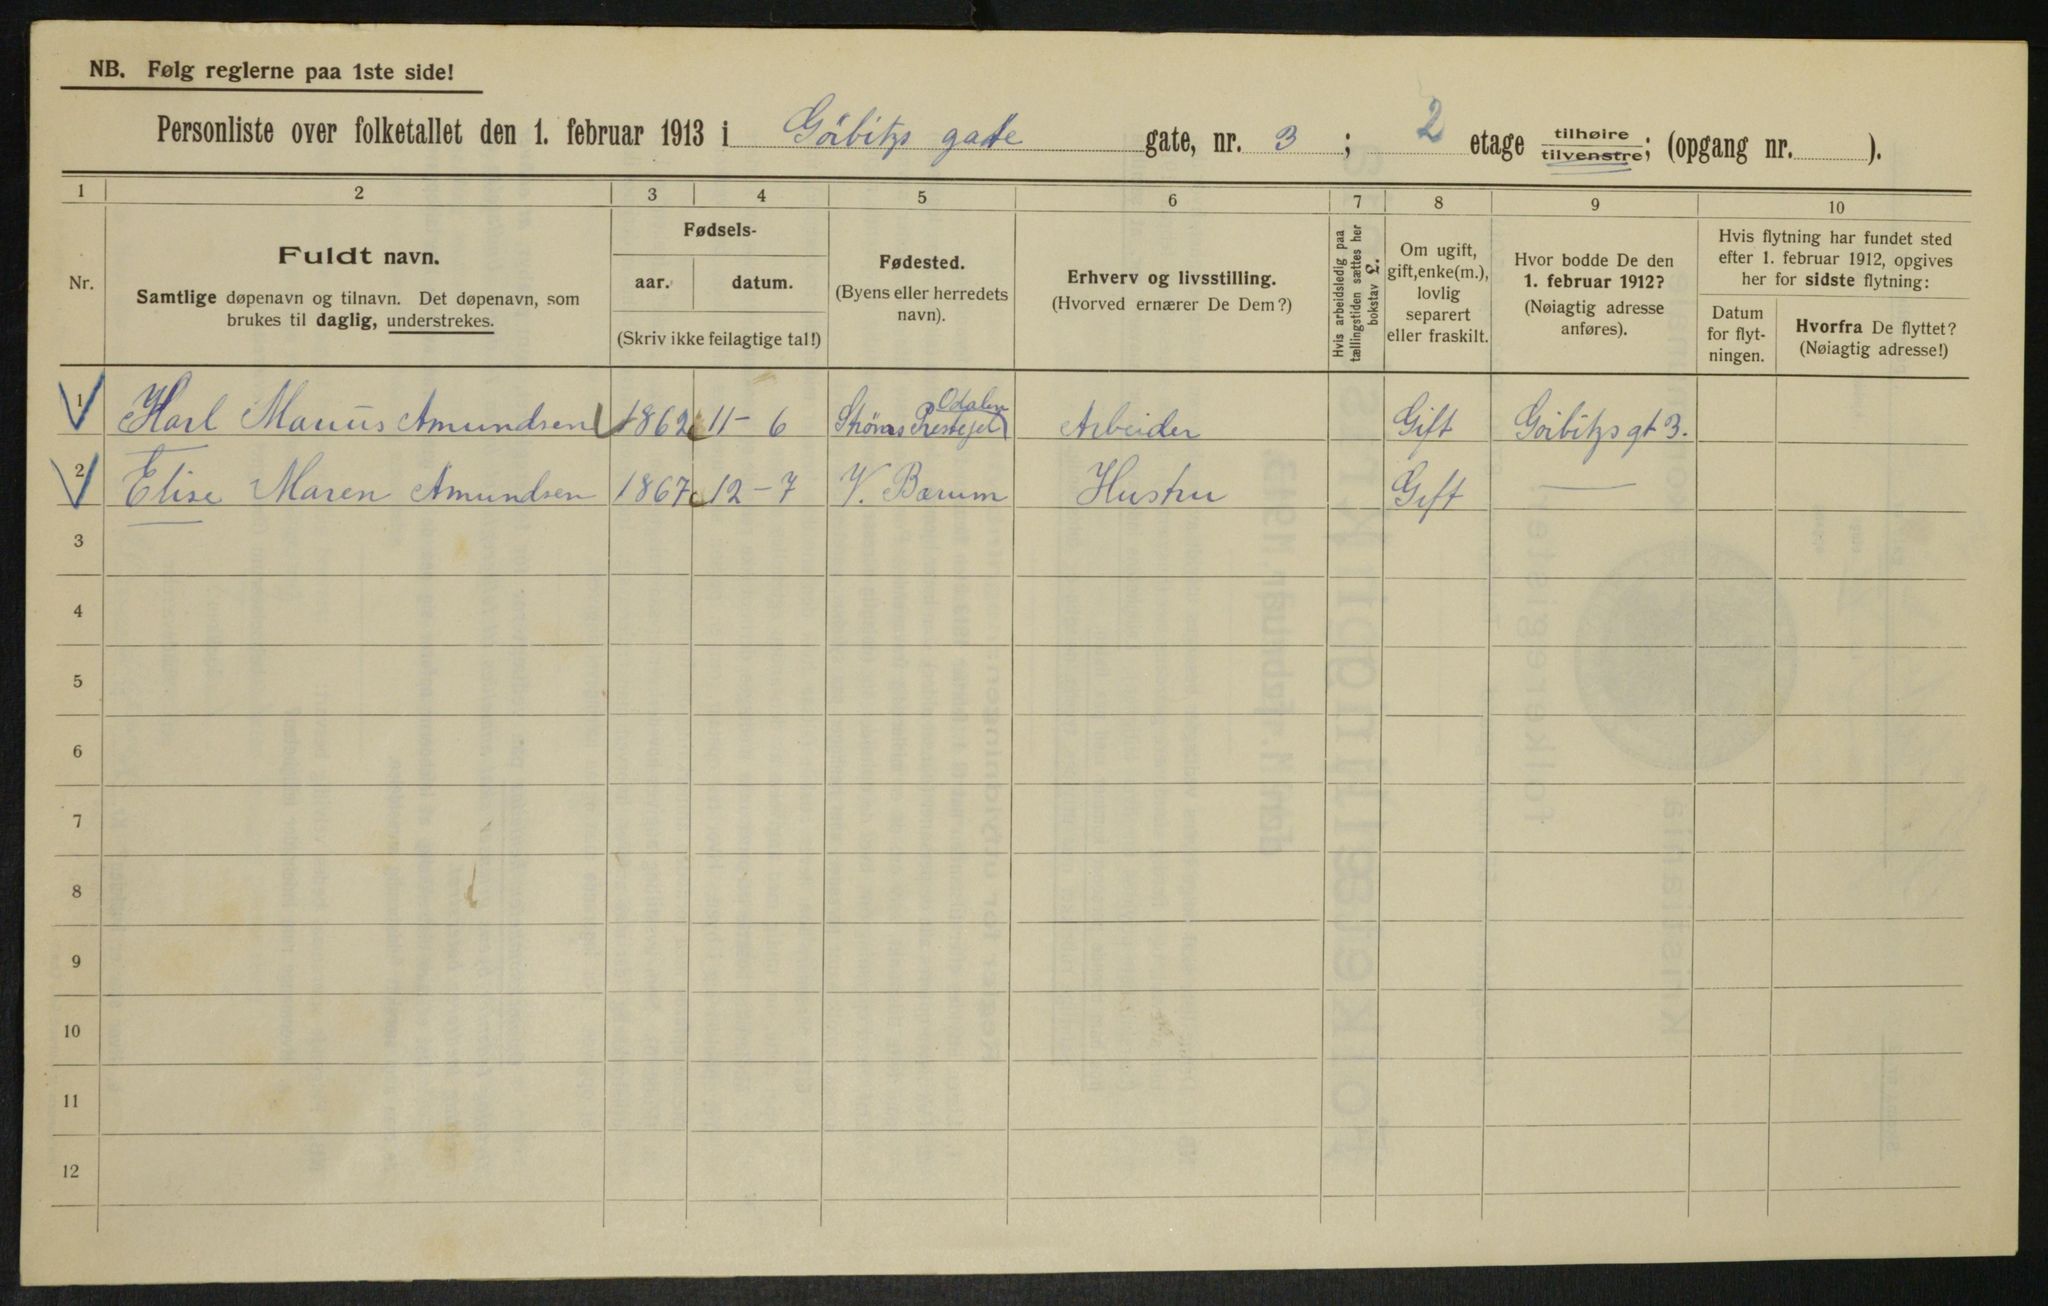 NB. Følg reglerne paa 1ste side!
Personliste over folketallet den 1. februar 1913 i Görbitzs gade gate, nr. 3; 2 etage tilhøire tilvenstre; (opgang nr. ).
1 2 3 4 5 6 7 8 9 10
Nr.
Fuldt navn.
Samtlige døpenavn og tilnavn. Det døpenavn, som
brukes til daglig, understrekes.
Fødsels-
aar. datum.
(Skriv ikke feilagtige tal!)
Fødested.
(Byens eller herredets
navn).
Erhverv og livsstilling.
(Hvorved ernærer De Dem?)
Hvis arbeidsledig paa
tællingstiden sættes her
bokstav L.
Om ugift,
gift, enke(m.),
lovlig
separert
eller fraskilt.
Hvor bodde De den
1. februar 1912?
(Nøiagtig adresse
anføres).
Hvis flytning har fundet sted
efter 1. februar 1912, opgives
her for sidste flytning:
Datum
for flyt-
ningen.
Hvorfra De flyttet?
(Nøiagtig adresse!)
1 Karl Marius Amundsen 1862 11-6 Odalen Arbeider Gift Görbitzs gt 3.
2 Elise Maren Amundsen 1867 12-7 V. Bærum Hustru Gift —
3
4
5
6
7
8
9
10
11
12